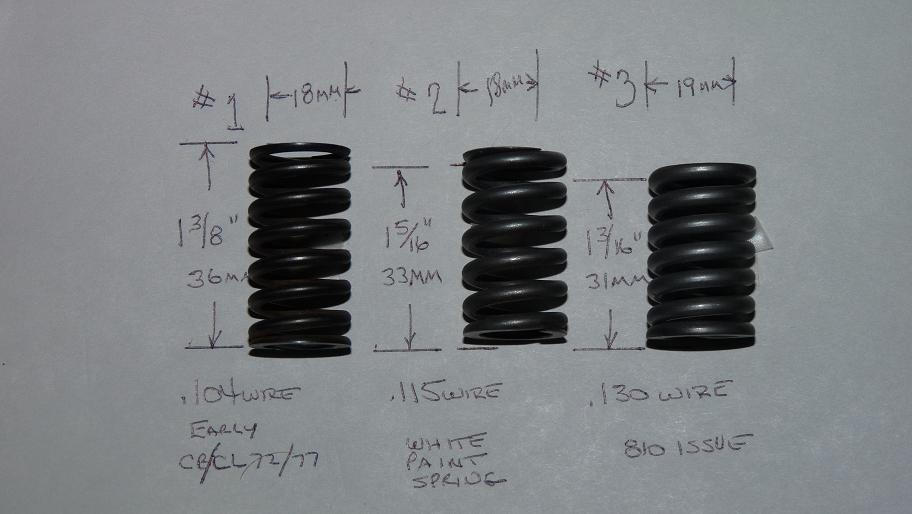 #1 18MM
1 3/8"
36MM
.104 WIRE
EARLY
CB/CL72/77
#2 18MM
1 5/16"
33MM
.115 WIRE
WHITE
PAINT
SPRING
#3 19MM
1 3/16"
31MM
.130 WIRE
810 ISSUE